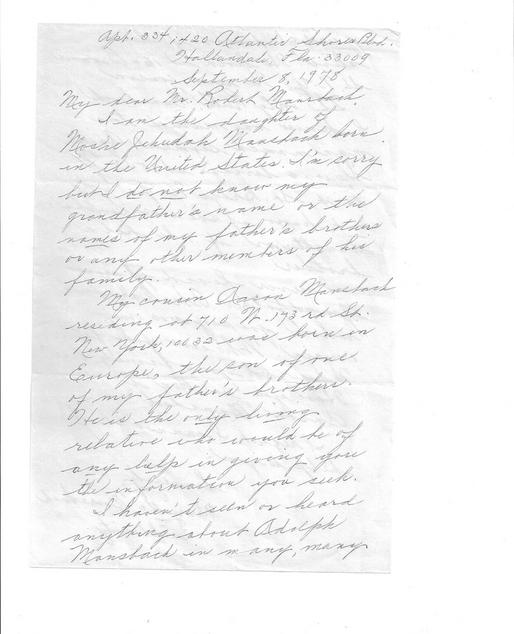 Apt. 334, 1420 Atlantic Shores Blvd.
Hallandale, Fla. 33009
September 8, 1978
My dear Mr. Robert Mansbach,
I am the daughter of
Moshe Jehudah Mansbach born
in the United States. I'm sorry
but I do not know my
grandfather's name or the
names of my father's brothers
or any other members of his
family.
My cousin Aaron Mansbach
residing at 710 W. 173rd St.
New York, 10032 was born in
Europe, the son of one
of my father's brothers.
He is the only living
relative who would be of
any help in giving you
the information you seek.
I haven't seen or heard
anything about Adolph
Mansbach in many, many